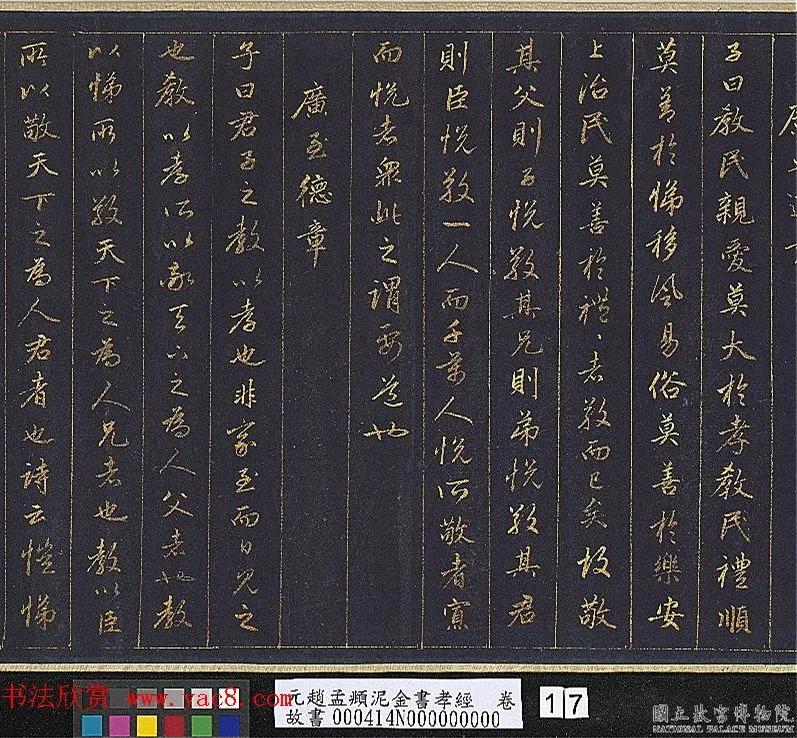 子曰教民親愛莫大於孝教民禮順
莫善於悌移風易俗莫善於樂安
上治民莫善於禮禮者敬而已矣故敬
其父則子悅敬其兄則弟悅敬其君
則臣悅敬一人而千萬人悅所敬者寡
而悅者眾此之謂要道也
廣至德章
子曰君子之教以孝也非家至而日見之
也教以孝所以敬天下之為人父者也教
以悌所以敬天下之為人兄者也教以臣
所以敬天下之為人君者也詩云愷悌
书法欣赏 www.yac8.com
元趙孟頫泥金書孝經 卷
故書 000414N000000000
17
國立故宮博物院
NATIONAL PALACE MUSEUM